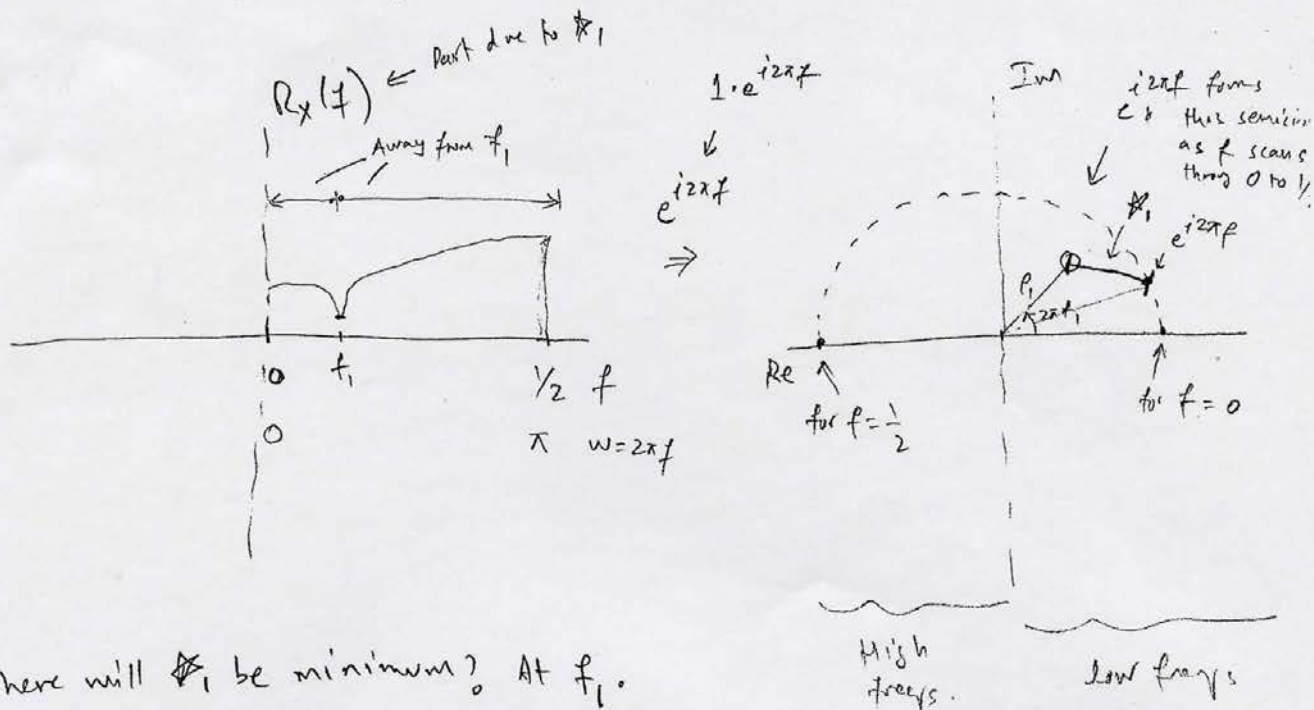 Rx(f) ← Part due to ☆₁
Away from f₁
0 f₁ 1/2 f
0 π w=2πf
1·e^{i2πf}
↓
e^{i2πf}
⇒
Im
e^{i2πf} forms
this semicir
as f scans
0 to 1/
☆₁
e^{i2πf}
ρ₁
2πf₁
Re
for f = 1/2
for f = 0
High
freqs.
low freqs
here will ☆₁ be minimum? At f₁.